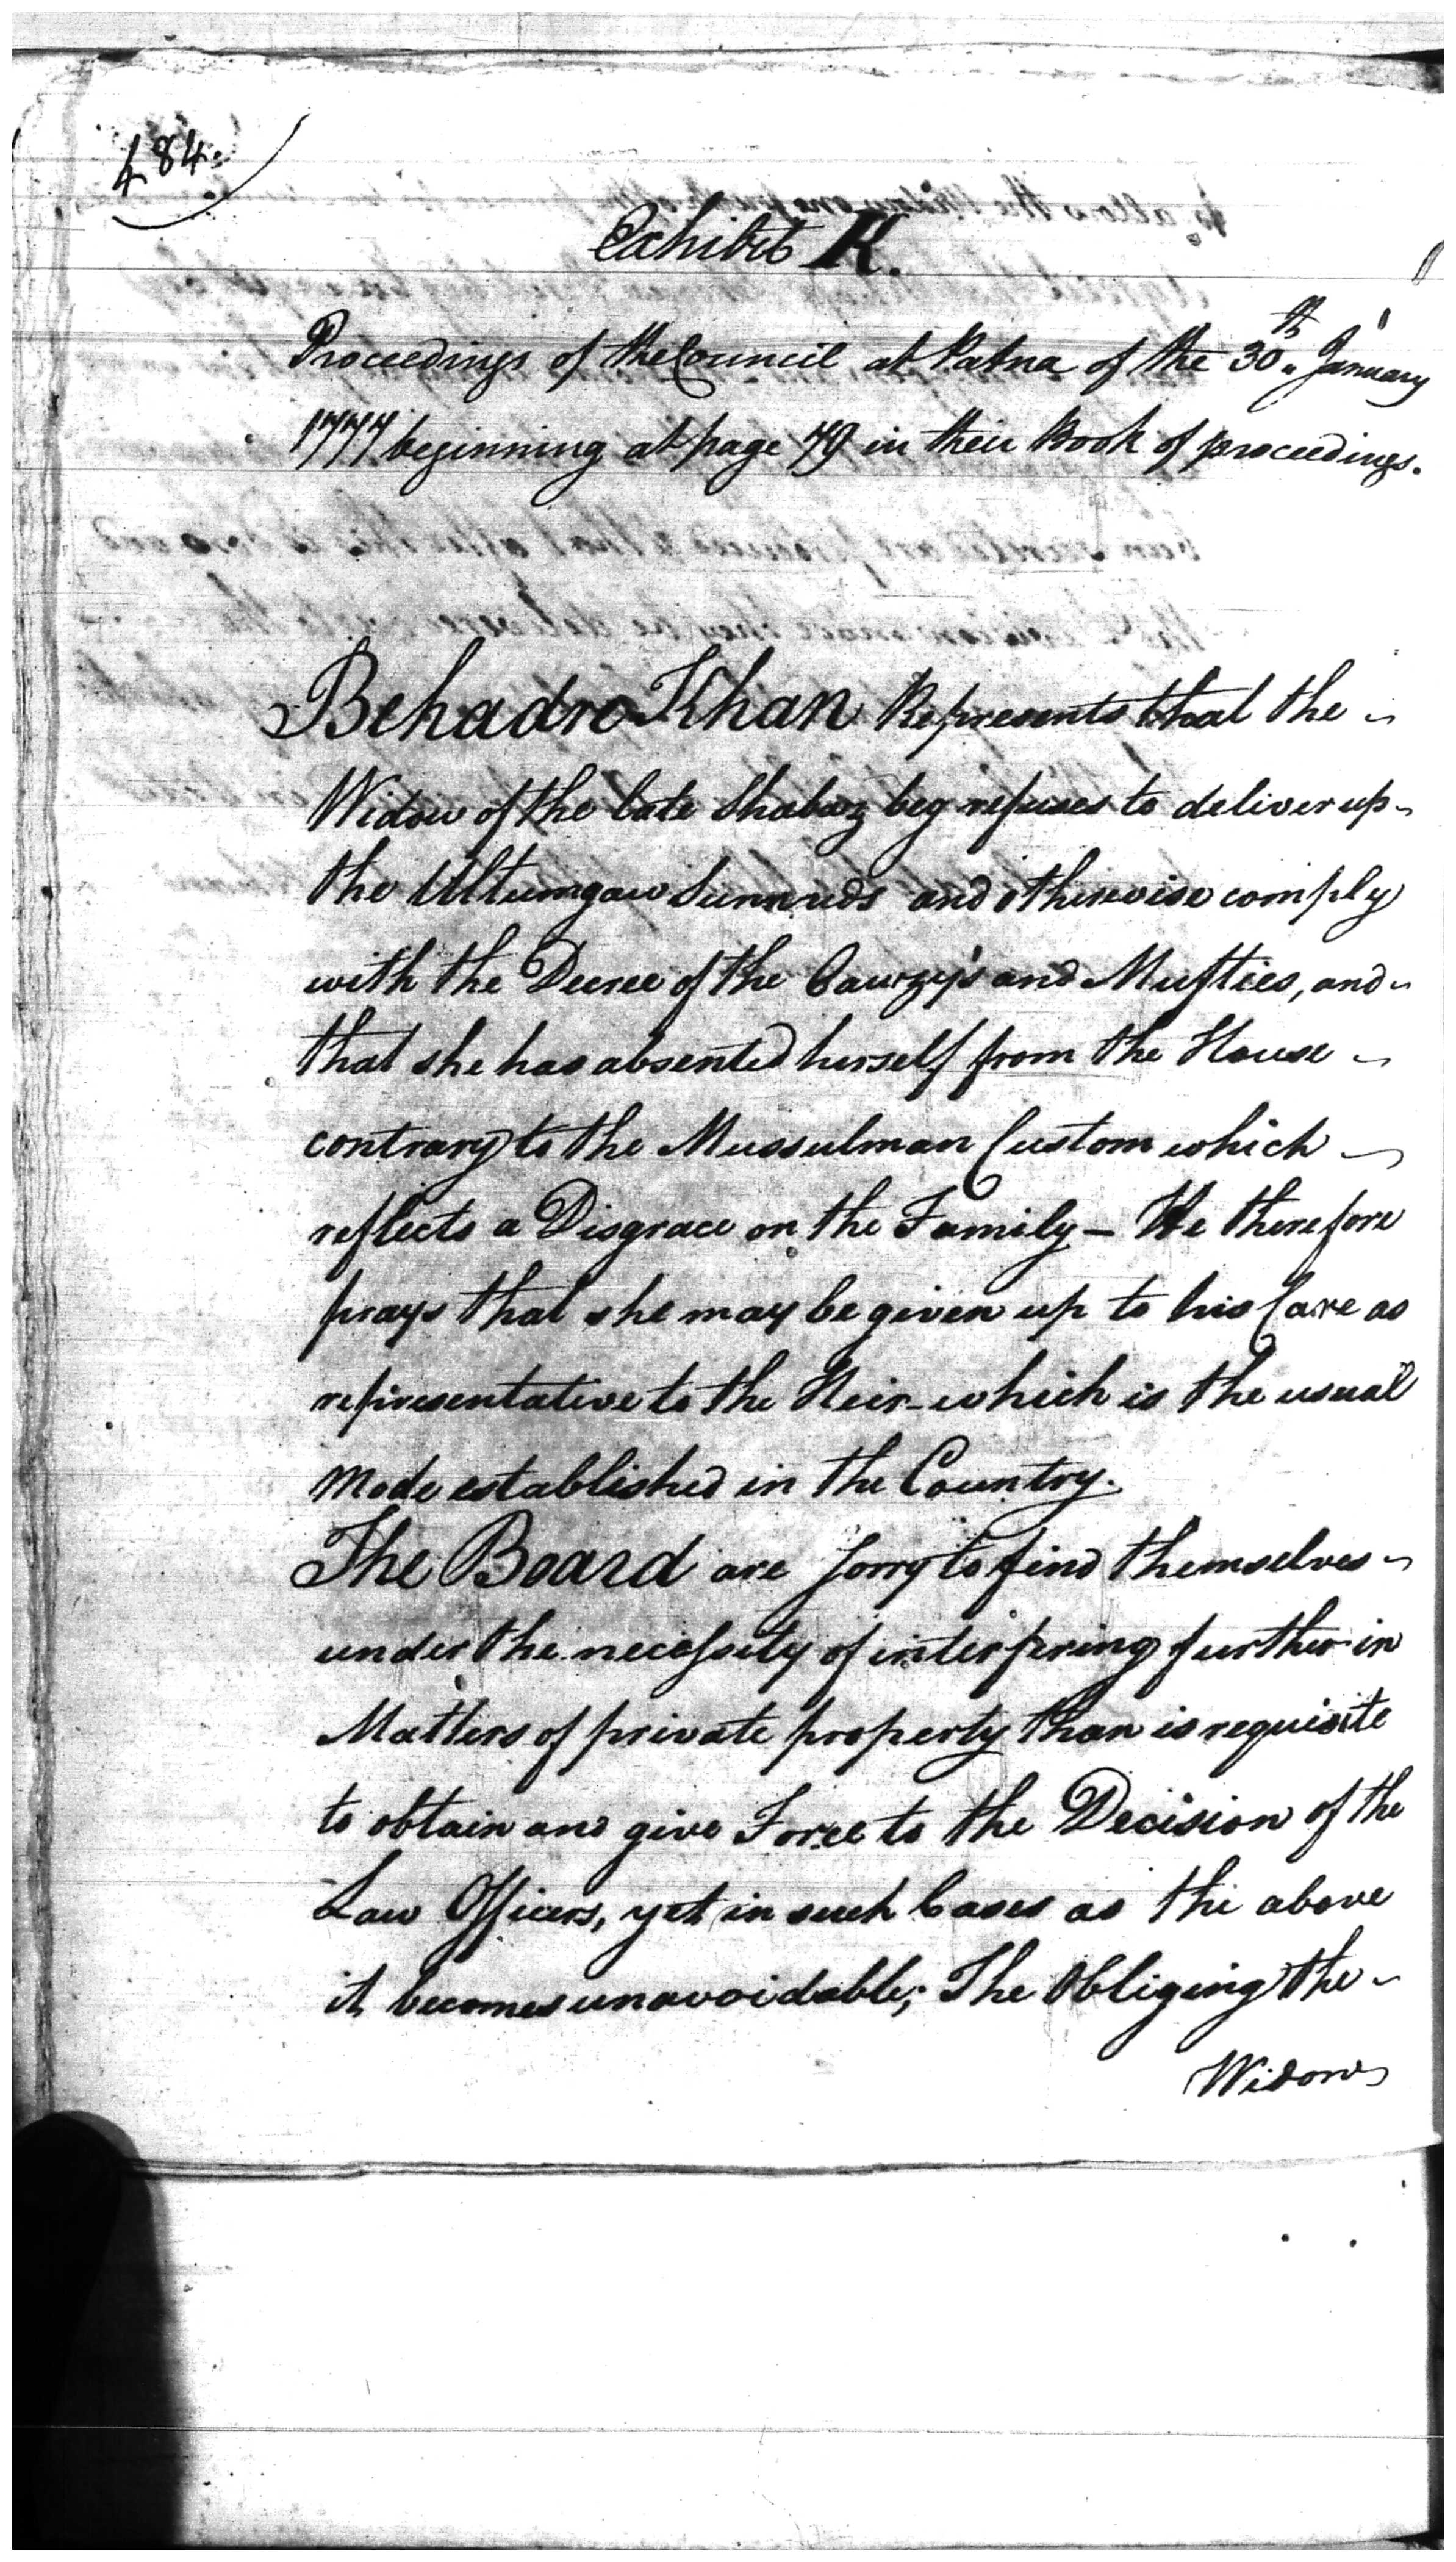 484.
Exhibit K.
Proceedings of the Council at Patna of the 30th January
1777 beginning at page 79 in their Book of proceedings.
Behadre Khan Represents that the
Widow of the late Shabaz beg refuses to deliver up
the Ultumgaw Sunnuds and otherwise comply
with the Decree of the Cawzy's and Mufties, and
that she has absented herself from the House
contrary to the Mussulman Custom which
reflects a Disgrace on the Family – He therefore
prays that she may be given up to his Care as
representative to the Heir which is the usual
Mode established in the Country.
The Board are sorry to find themselves
under the necessity of interfering further in
Matters of private property than is requisite
to obtain and give Force to the Decision of the
Law Officers, yet in such Cases as the above
it becomes unavoidable; The Obliging the
Widow